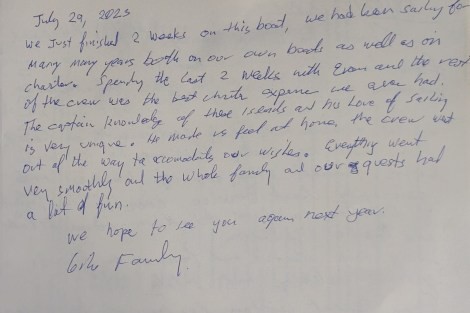 July 29, 2023
We Just finished 2 weeks on this boat, we have been sailing for
many many years booth on our own boats as well as on
charter. Spending the last 2 weeks with and the rest
of the crew was the best charter we ever had.
The captain knowledge of these Islands and his Love of sailing
is very unique. He made us feel at home, the crew went
out of the way to our wishes. Everything went
very smoothly and the whole family and our guests had
a lot of fun.
we hope to see you again next year.
Family.